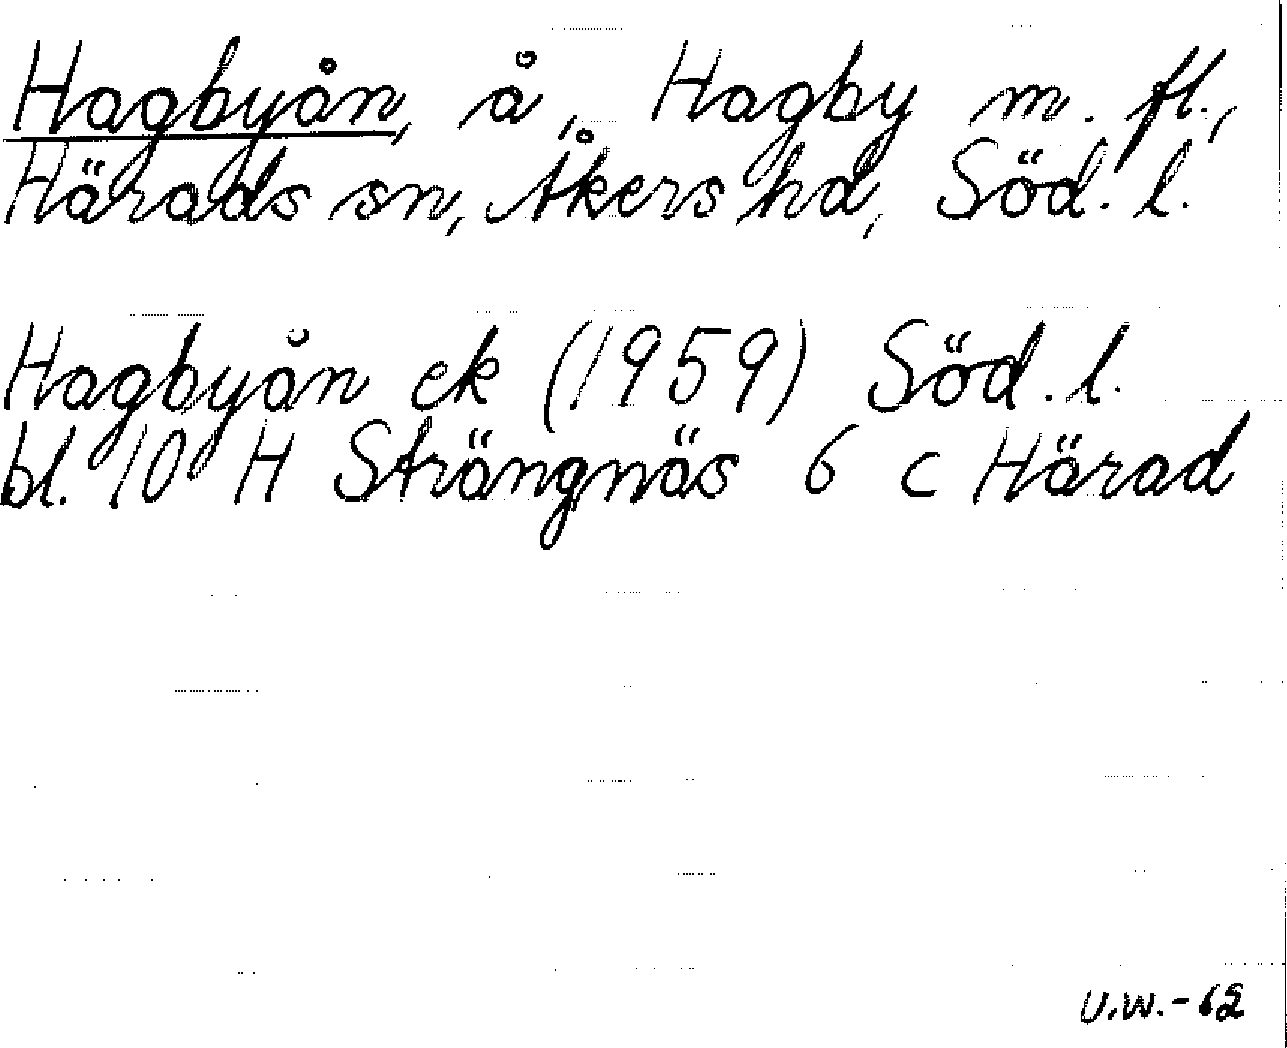 Hagbyån, å, Hagby m. fl.,
Härads sn, Åkers hd, Söd. l.
Hagbyån ek (1959) Söd. l.
bl. 10 H Strängnäs 6 c Härad
U.W.-62